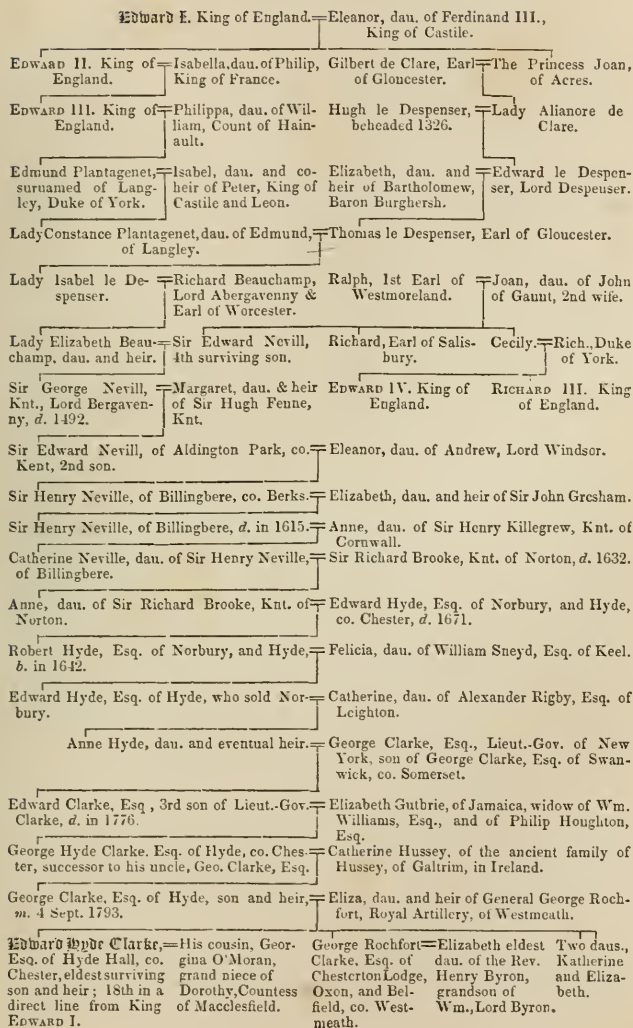 Edward I. King of England. Eleanor, dau. of Ferdinand III.,
King of Castile.
EDWARD II. King of
England.
Isabella, dau. of Philip,
King of France.
Gilbert de Clare, Earl
of Gloucester.
The Princess Joan,
of Acres.
EDWARD III. King of
England.
Philippa, dau. of Wil-
liam, Count of Hain-
ault.
Hugh le Despenser,
beheaded 1326.
Lady Alianore de
Clare.
Edmund Plantagenet,
surnamed of Lang-
ley, Duke of York.
Isabel, dau. and co-
heir of Peter, King of
Castile and Leon.
Elizabeth, dau. and
heir of Bartholomew,
Baron Burghersh.
Edward le Despen-
ser, Lord Despenser.
Lady Constance Plantagenet, dau. of Edmund,
of Langley.
Thomas le Despenser, Earl of Gloucester.
Lady Isabel le De-
spenser.
Richard Beauchamp,
Lord Abergavenny &
Earl of Worcester.
Ralph, 1st Earl of
Westmoreland.
Joan, dau. of John
of Gaunt, 2nd wife.
Lady Elizabeth Beau-
champ, dau. and heir.
Sir Edward Nevill,
4th surviving son.
Richard, Earl of Salis-
bury.
Cecily.
Rich., Duke
of York.
Sir George Nevill,
Knt., Lord Bergaven-
ny, d. 1492.
Margaret, dau. & heir
of Sir Hugh Fenne,
Knt.
EDWARD IV. King of
England.
RICHARD III. King
of England.
Sir Edward Nevill, of Aldington Park, co.
Kent, 2nd son.
Eleanor, dau. of Andrew, Lord Windsor.
Sir Henry Neville, of Billingbere, co. Berks.
Elizabeth, dau. and heir of Sir John Gresham.
Sir Henry Neville, of Billingbere, d. in 1615.
Anne, dau. of Sir Henry Killegrew, Knt. of
Cornwall.
Catherine Neville, dau. of Sir Henry Neville,
of Billingbere.
Sir Richard Brooke, Knt. of Norton, d. 1632.
Anne, dau. of Sir Richard Brooke, Knt. of
Norton.
Edward Hyde, Esq. of Norbury, and Hyde,
co. Chester, d. 1671.
Robert Hyde, Esq. of Norbury, and Hyde,
b. in 1642.
Felicia, dau. of William Sneyd, Esq. of Keel.
Edward Hyde, Esq. of Hyde, who sold Nor-
bury.
Catherine, dau. of Alexander Rigby, Esq. of
Leighton.
Anne Hyde, dau. and eventual heir.
George Clarke, Esq., Lieut.-Gov. of New
York, son of George Clarke, Esq. of Swan-
wick, co. Somerset.
Edward Clarke, Esq, 3rd son of Lieut.-Gov.
Clarke, d. in 1776.
Elizabeth Guthrie, of Jamaica, widow of Wm.
Williams, Esq., and of Philip Houghton,
Esq.
George Hyde Clarke, Esq. of Hyde, co. Ches-
ter, successor to his uncle, Geo. Clarke, Esq.
Catherine Hussey, of the ancient family of
Hussey, of Galtrim, in Ireland.
George Clarke, Esq. of Hyde, son and heir,
m. 4 Sept. 1793.
Eliza, dau. and heir of General George Roch-
fort, Royal Artillery, of Westmeath.
Edward Hyde Clarke,
Esq. of Hyde Hall, co.
Chester, eldest surviving
son and heir; 18th in a
direct line from King
EDWARD I.
His cousin, Geor-
gina O'Moran,
grand niece of
Dorothy, Countess
of Macclesfield.
George Rochfort
Clarke, Esq. of
Chesterton Lodge,
Oxon, and Bel-
field, co. West-
meath.
Elizabeth eldest
dau. of the Rev.
Henry Byron,
grandson of
Wm., Lord Byron.
Two daus.,
Katherine
and Eliza-
beth.